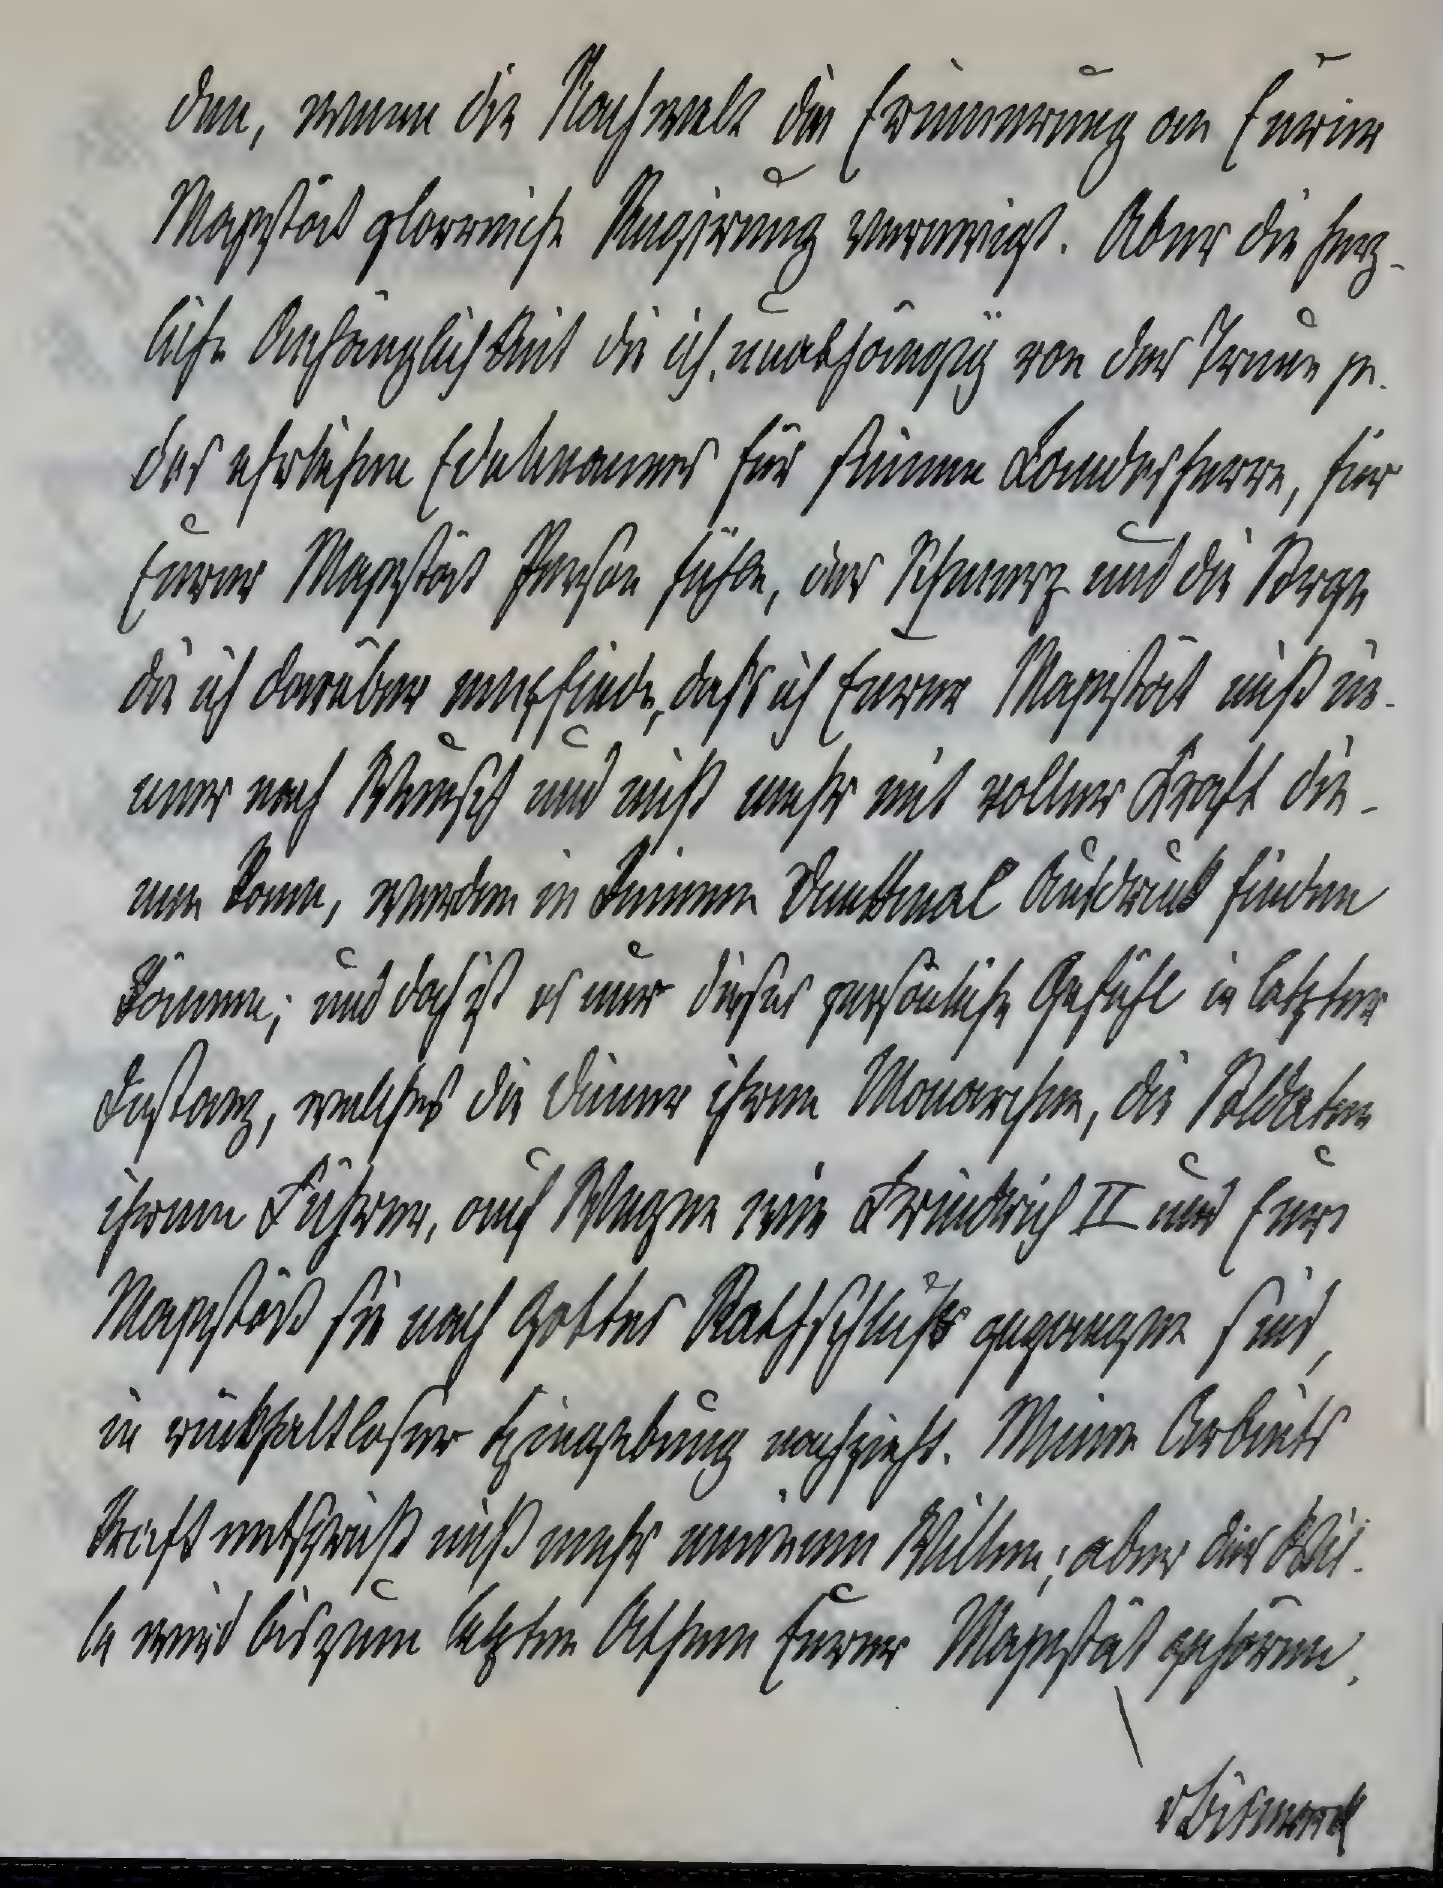 den, wenn die Nachwelt die Erinnerung an Eurer
Majestät glorreiche Regirung verewigt. Aber die herz-
liche Anhänglichkeit die ich, unabhängig von der Treue je-
des ehrlichen Edelmannes für seinen Landesherrn, für
Eurer Majestät Person fühle, der Schmerz und die Sorge
die ich darüber empfinde, daß ich Eurer Majestät nicht im-
mer nach Wunsch und nicht mehr mit voller Kraft die-
nen kann, werden in keinem Denkmal Ausdruck finden
können; und doch ist es nur dieses persönliche Gefühl in letzter
Instanz, welches die Diener ihrem Monarchen, die Soldaten
ihrem Führer, auf Wegen wie Friedrich II und Eure
Majestät sie nach Gottes Rathschluß gegangen sind,
in rückhaltloser Hingebung nachzieht. Meine Arbeits
kraft entspricht nicht mehr meinem Willen; aber der Wil-
le wird bis zum letzten Athem Eurer Majestät gehören.
vBismarck